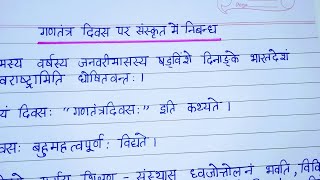 गणतंत्र दिवस पर संस्कृत में निबन्ध
मस्य वर्षस्य जनवरीमासस्य षड्विंशे दिनाङ्के भारतदेशं
वराष्ट्रामिति घोषितवन्तः।
यं दिवसः "गणतंत्रदिवसः" इति कथ्यते।
वसः बहुमहत्वपूर्णः विद्यते।
संस्थासु ध्वजोत्तोलनं भवति,